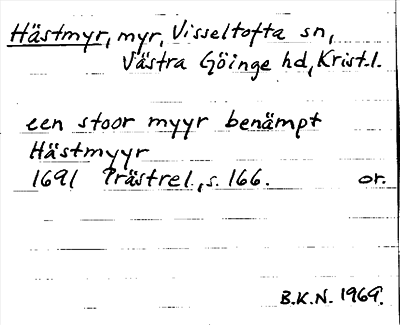 Hästmyr, myr, Visseltofta sn,
Västra Göinge hd, Krist.l.
een stoor myyr benämpt
Hästmyyr
1691 Prästrel., s. 166. or.
B.K.N. 1969.